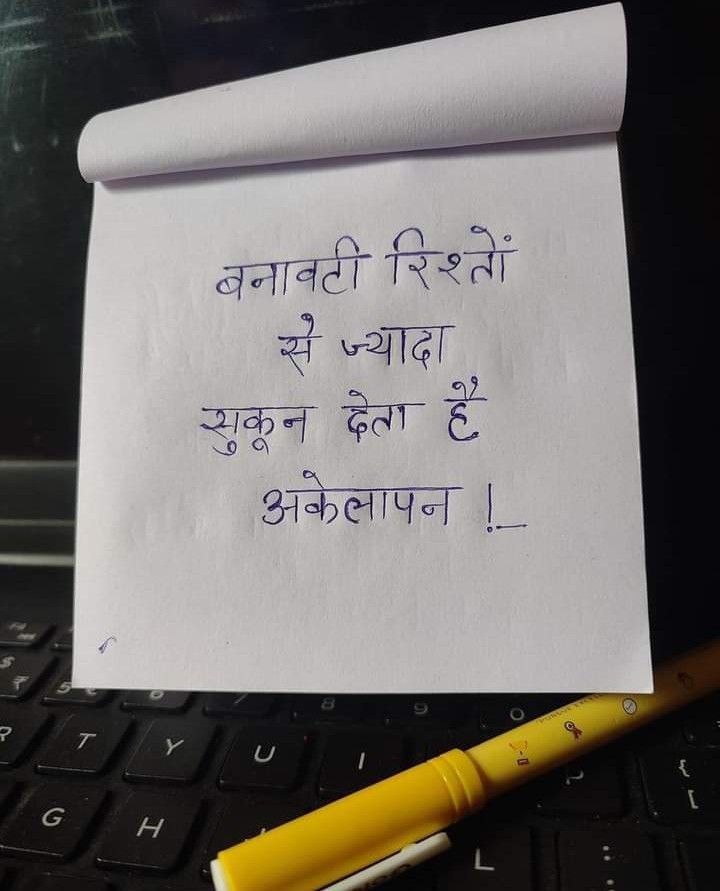 बनावटी रिश्तों
से ज्यादा
सुकून देता है
अकेलापन !_
$ ₹ 5 € 6 8 9 O
R T Y U I {
[
G H L :